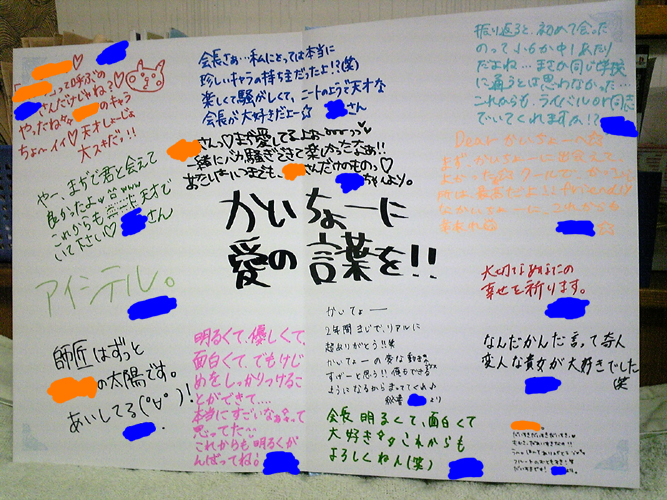 って呼ぶの
さんだけじゃね?♡
やったね☆ のキャラ
ちょーイイ♡天才しょーじょ
大スキだッ!!
会長さぁ…私にとっては本当に
珍しいキャラの持ち主だったよ!?(笑)
楽しくて騒がしくて、ニートのようで天才な
会長が大好きだよー☆
さん
振り返ると、初めて会った
のって小6か中1あたり
だよね… まさか同じ学校
に通うとは思わなかった…
これからも、ライバル
でいてくれますか!?
さんっ♡まぢ愛してるよぉ
一緒にバカ騒ぎできて楽しかったなぁ!!
いつまでも、 さんだけのもの。♡
ちゃんより。
Dear かいちょーへ☆
まず、かいちょーに出会えて、
よかった☆クールで、かっこ
friendly
なかいちょーに、これからも
やー、まぢで君と会えて
良かったよ
これからも 天才で
いて下さい♡ さん
かいちょーに
愛の言葉を!!
アイシテル。
大切なあなたの
幸せを祈ります。
師匠はずっと
の太陽です。
あいしてる(°∀°)!
明るくて、優しくて、
面白くて、でもけじ
めをしっかりつけるこ
とができて…。
本当にすごいなぁって
思ってた…
これからも明るくが
んばってね!
かいちょー
2年間まじで、リアルに
超ありがとう!!笑
かいちょーの
すげーと思う!!
ようになるからまっててくれ♪
より
会長 明るくて、面白くて
大好きです これからも
よろしくねん(笑)
なんだかんだ言って奇人
変人な貴女が大好きでした
(笑)